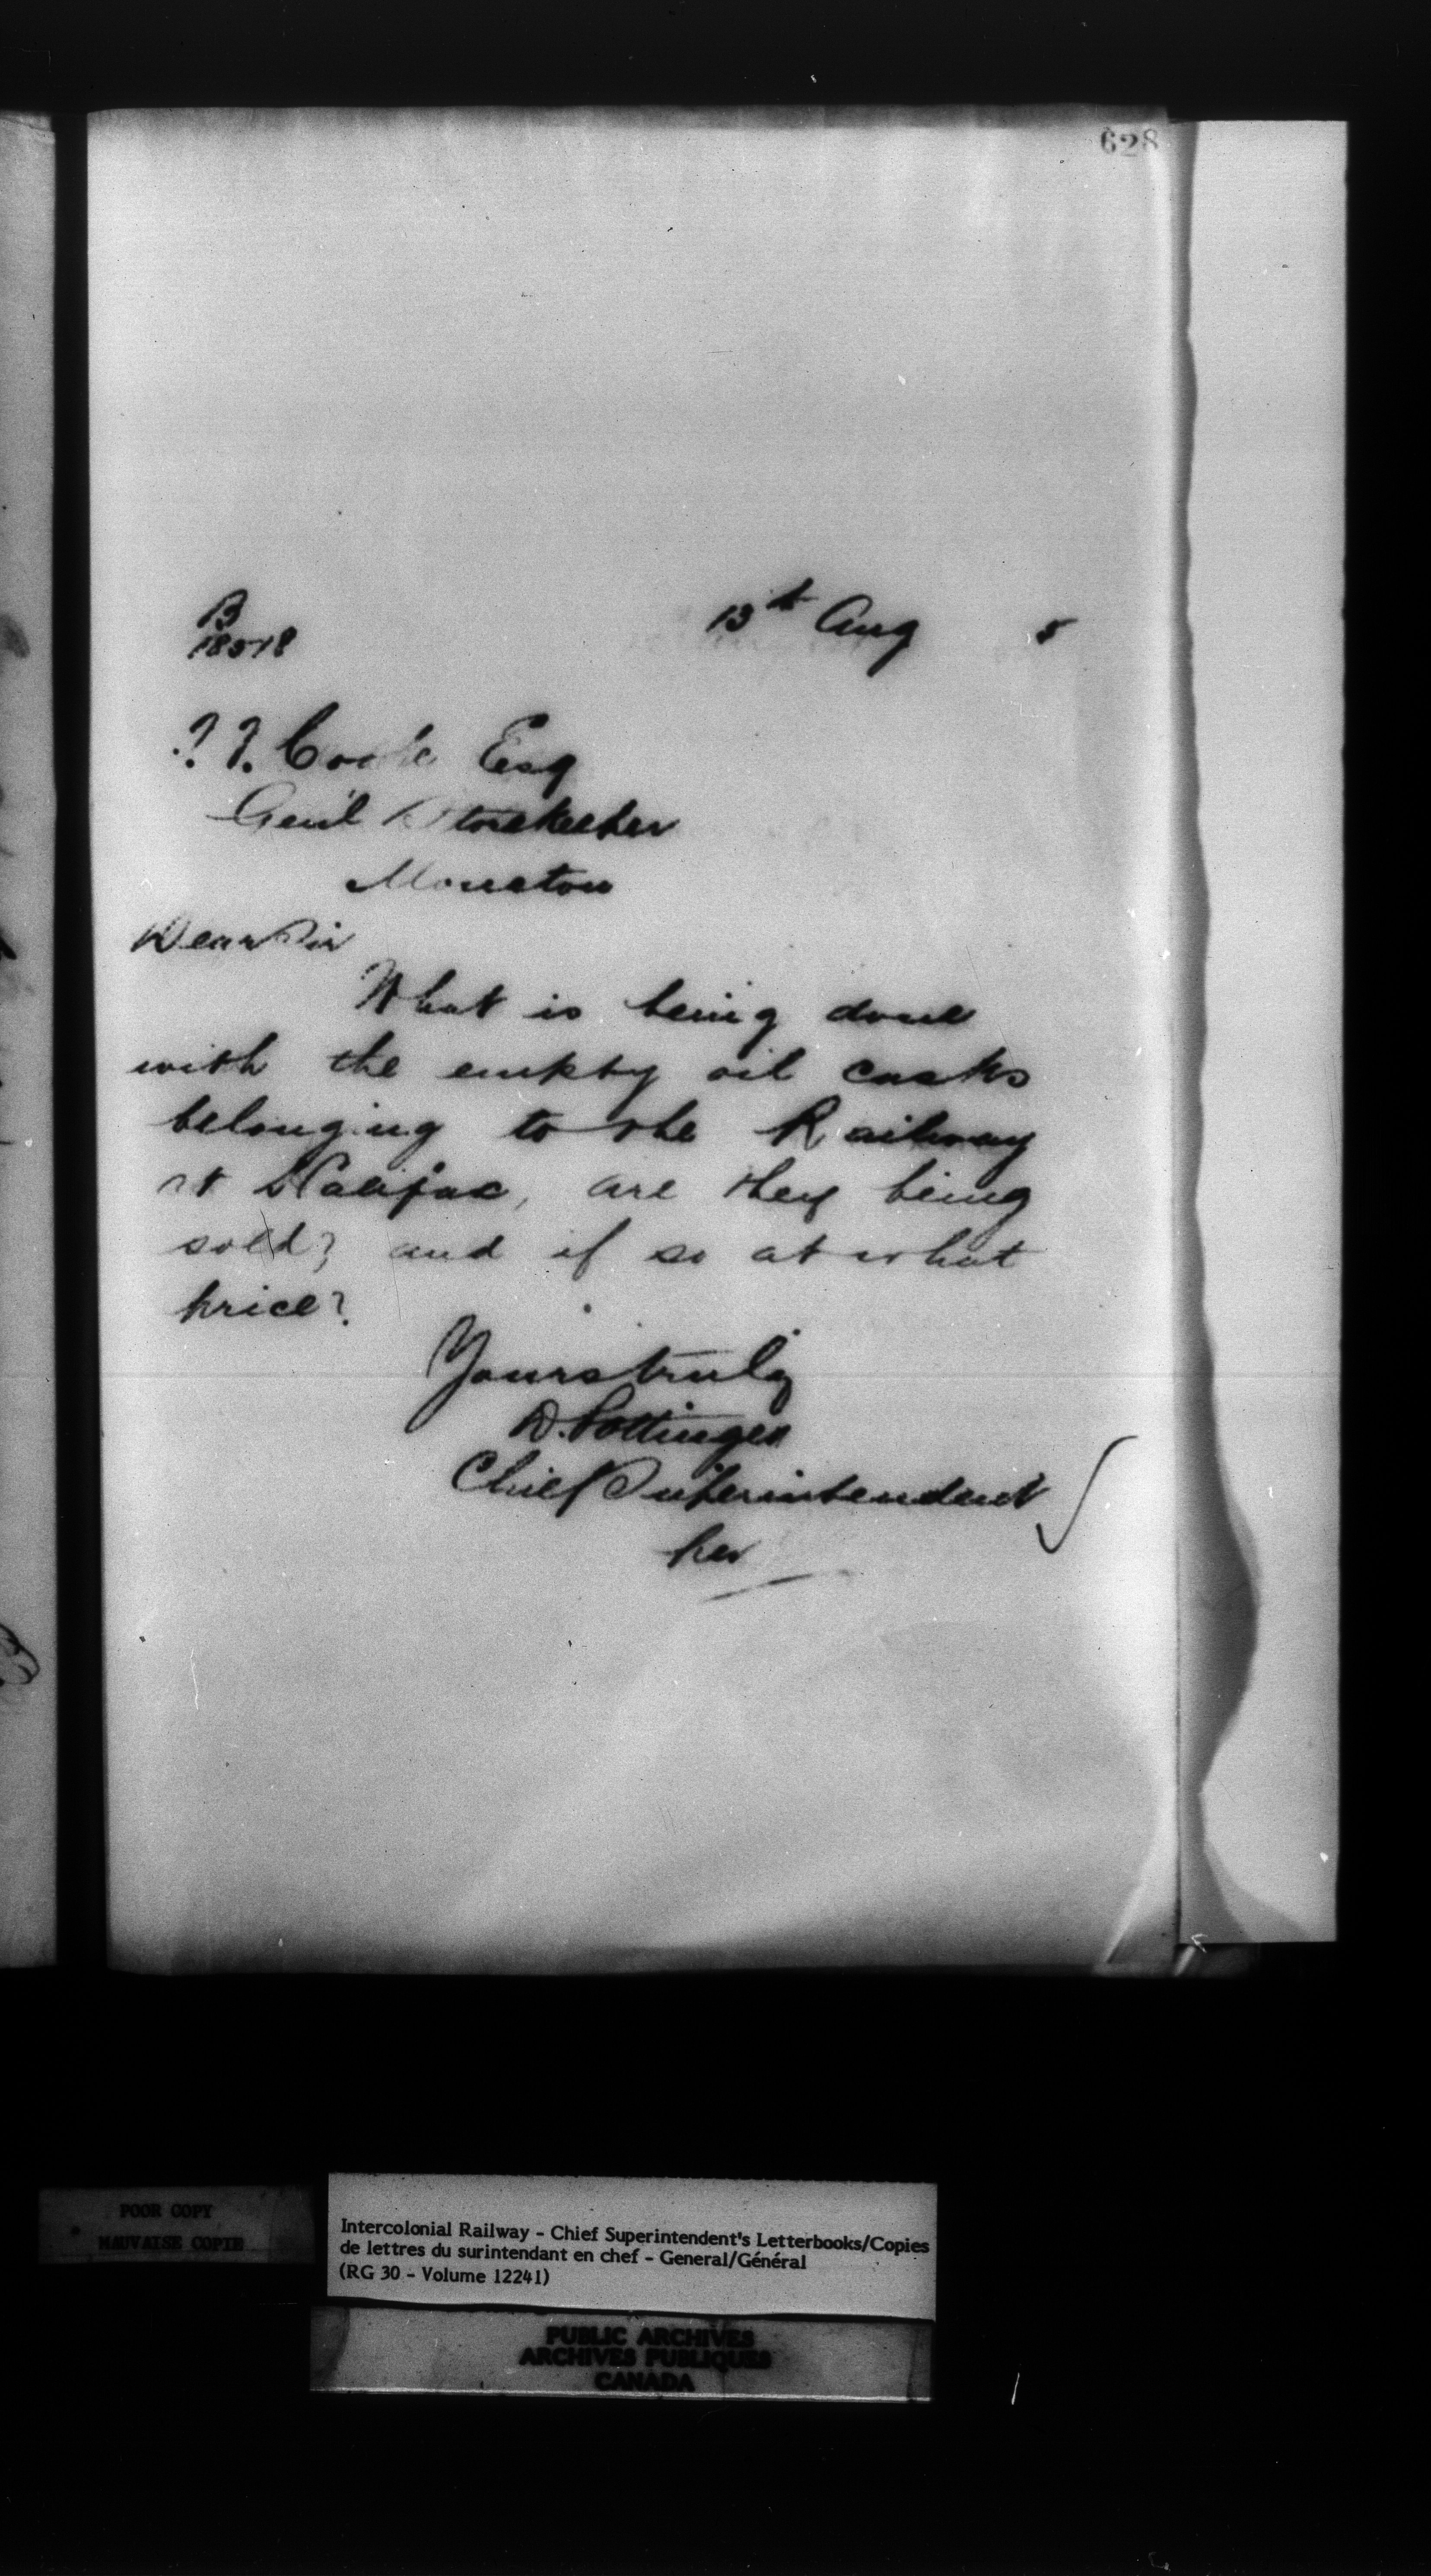 628
B
18518
13th Aug 5
Cooke Esq
Gen'l Storekeeper
Moncton
Dear Sir
What is being done
with the empty oil casks
belonging to the Railway
at Halifax, are they being
sold? and if so at what
price?
Yours truly
D. Pottinger
Chief Superintendent
per
POOR COPY
MAUVAISE COPIE
Intercolonial Railway - Chief Superintendent's Letterbooks/Copies
de lettres du surintendant en chef - General/Général
(RG 30 - Volume 12241)
PUBLIC ARCHIVES
ARCHIVES PUBLIQUES
CANADA